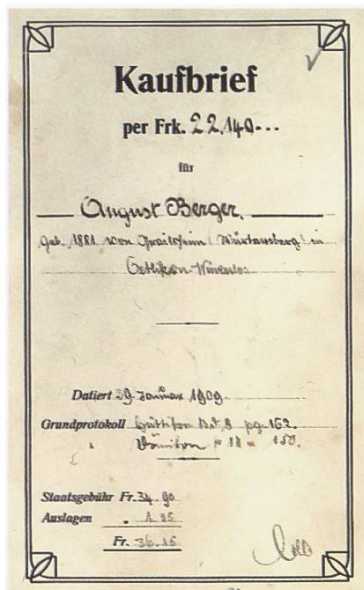 Kaufbrief
per Frk. 22,140.--
für
August Berger,
geb. 1881 von Crailsheim (Württemberg) in
Oetlikon-Würenlos
Datiert 29. Januar 1909.
Grundprotokoll Hüttikon Bd. 8 pg. 162.
" Dänikon " 18 " 150.
Staatsgebühr Fr. 34.90
Auslagen " 1.25
Fr. 36.15